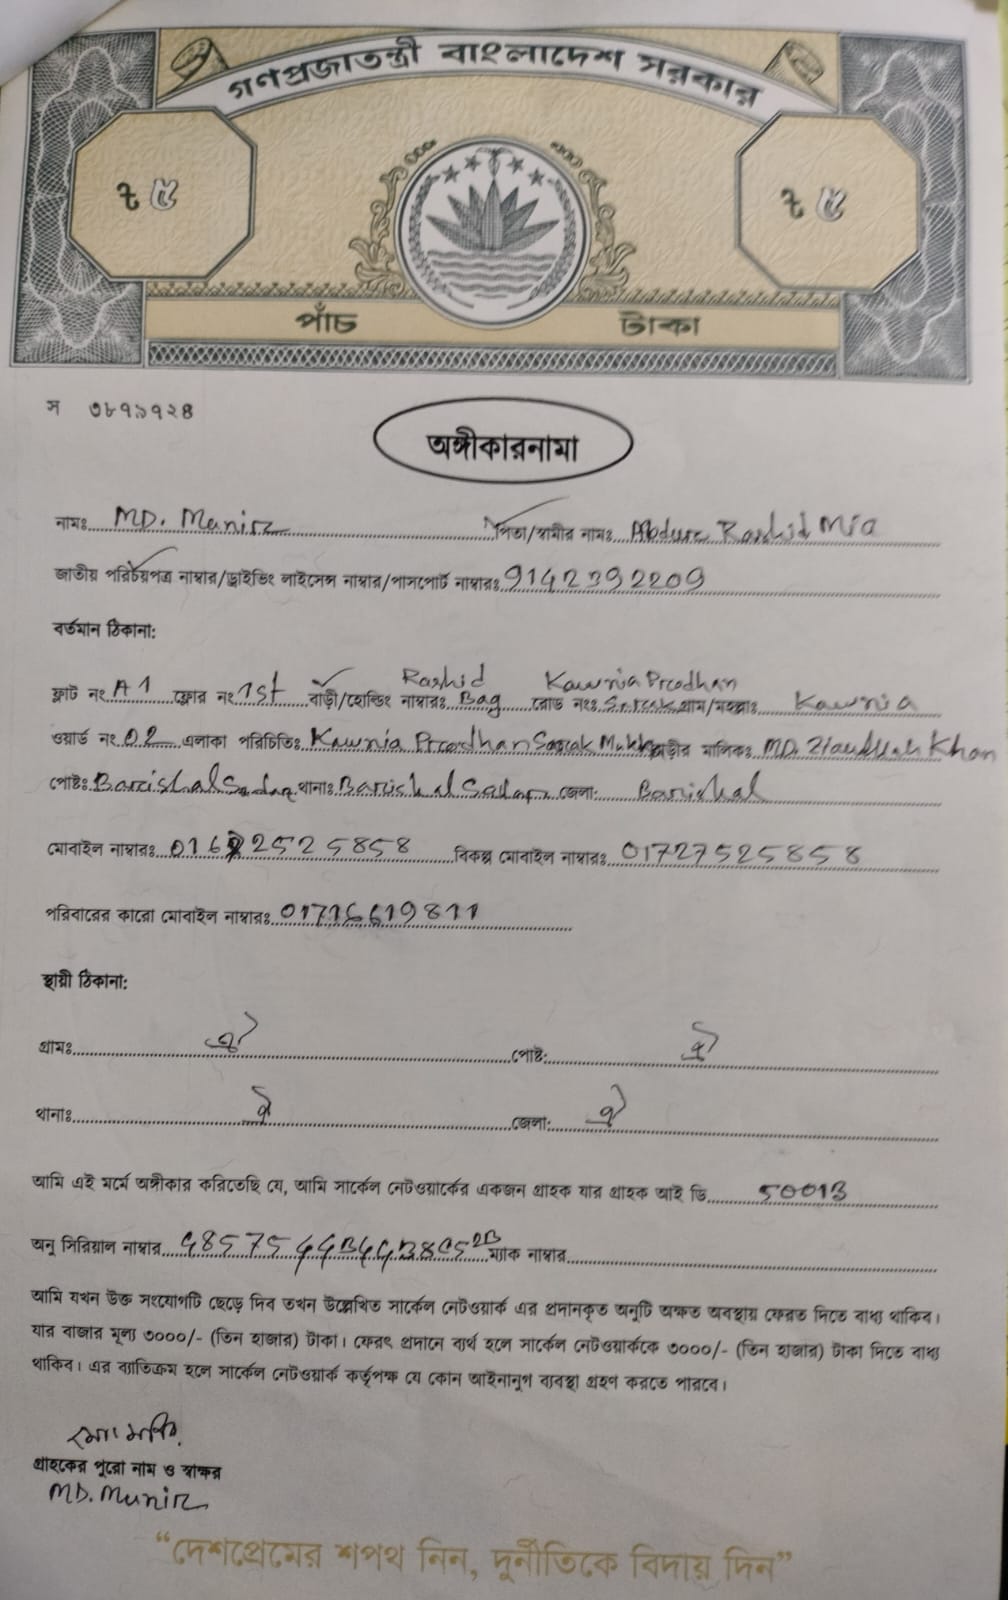 গণপ্রজাতন্ত্রী বাংলাদেশ সরকার
৳ ৫ ৳ ৫
পাঁচ টাকা
স ৩৮৭৯৭২৪
অঙ্গীকারনামা
নামঃ MD. Munir পিতা/স্বামীর নামঃ Abdur Rashid Mia
জাতীয় পরিচয়পত্র নাম্বার/ড্রাইভিং লাইসেন্স নাম্বার/পাসপোর্ট নাম্বারঃ 9142392209
বর্তমান ঠিকানা:
ফ্লাট নং A1 ফ্লোর নং 1st বাড়ী/হোল্ডিং নাম্বারঃ Rashid Bag রোড নংঃ Kawnia Prodhan Sarak গ্রাম/মহল্লাঃ Kawnia
ওয়ার্ড নং 02 এলাকা পরিচিতিঃ Kawnia Prodhan Sarak Mukh বাড়ীর মালিকঃ MD. Khan
পোষ্টঃ Barishal Sadar থানাঃ Barishal Sadar জেলা: Barishal
মোবাইল নাম্বারঃ বিকল্প মোবাইল নাম্বারঃ 01727525858
পরিবারের কারো মোবাইল নাম্বারঃ 01716619811
স্থায়ী ঠিকানা:
গ্রামঃ ঐ পোষ্ট: ঐ
থানাঃ ঐ জেলা: ঐ
আমি এই মর্মে অঙ্গীকার করিতেছি যে, আমি সার্কেল নেটওয়ার্কের একজন গ্রাহক যার গ্রাহক আই ডি 50013
অনু সিরিয়াল নাম্বার ম্যাক নাম্বার
আমি যখন উক্ত সংযোগটি ছেড়ে দিব তখন উল্লেখিত সার্কেল নেটওয়ার্ক এর প্রদানকৃত অনুটি অক্ষত অবস্থায় ফেরত দিতে বাধ্য থাকিব।
যার বাজার মূল্য ৩০০০/- (তিন হাজার) টাকা। ফেরৎ প্রদানে ব্যর্থ হলে সার্কেল নেটওয়ার্ককে ৩০০০/- (তিন হাজার) টাকা দিতে বাধ্য
থাকিব। এর ব্যাতিক্রম হলে সার্কেল নেটওয়ার্ক কর্তৃপক্ষ যে কোন আইনানুগ ব্যবস্থা গ্রহণ করতে পারবে।
মোঃ মনির
গ্রাহকের পুরো নাম ও স্বাক্ষর
MD. Munir
“দেশপ্রেমের শপথ নিন, দুর্নীতিকে বিদায় দিন”